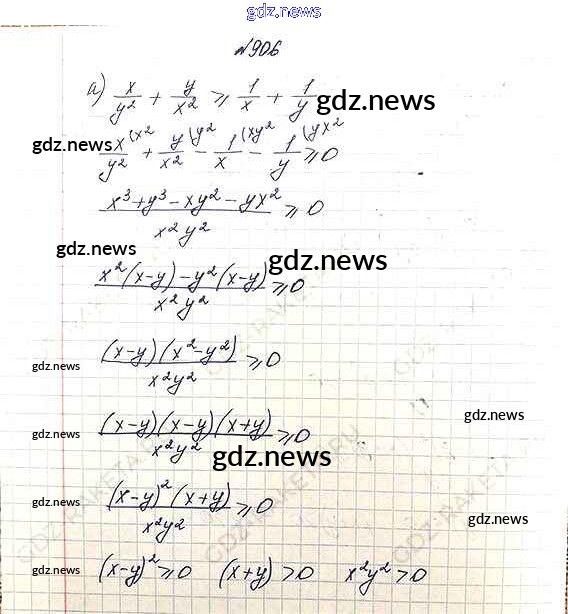 gdz.news
№906
а) x/y² + y/x² ⩾ 1/x + 1/y
gdz.news
x/y² (x² + y/x² \y² − 1/x (xy² − 1/y (yx² ⩾ 0
gdz.news
(x³+y³−xy²−yx²)/(x²y²) ⩾ 0
gdz.news
gdz.news
(x²(x−y)−y²(x−y))/(x²y²) ⩾ 0
(x−y)(x²−y²)/(x²y²) ⩾ 0
gdz.news
gdz.news
(x−y)(x−y)(x+y)/(x²y²) ⩾ 0
gdz.news
gdz.news
(x−y)²(x+y)/(x²y²) ⩾ 0
gdz.news
gdz.news
(x−y)²⩾0 (x+y)>0 x²y²>0
gdz.news